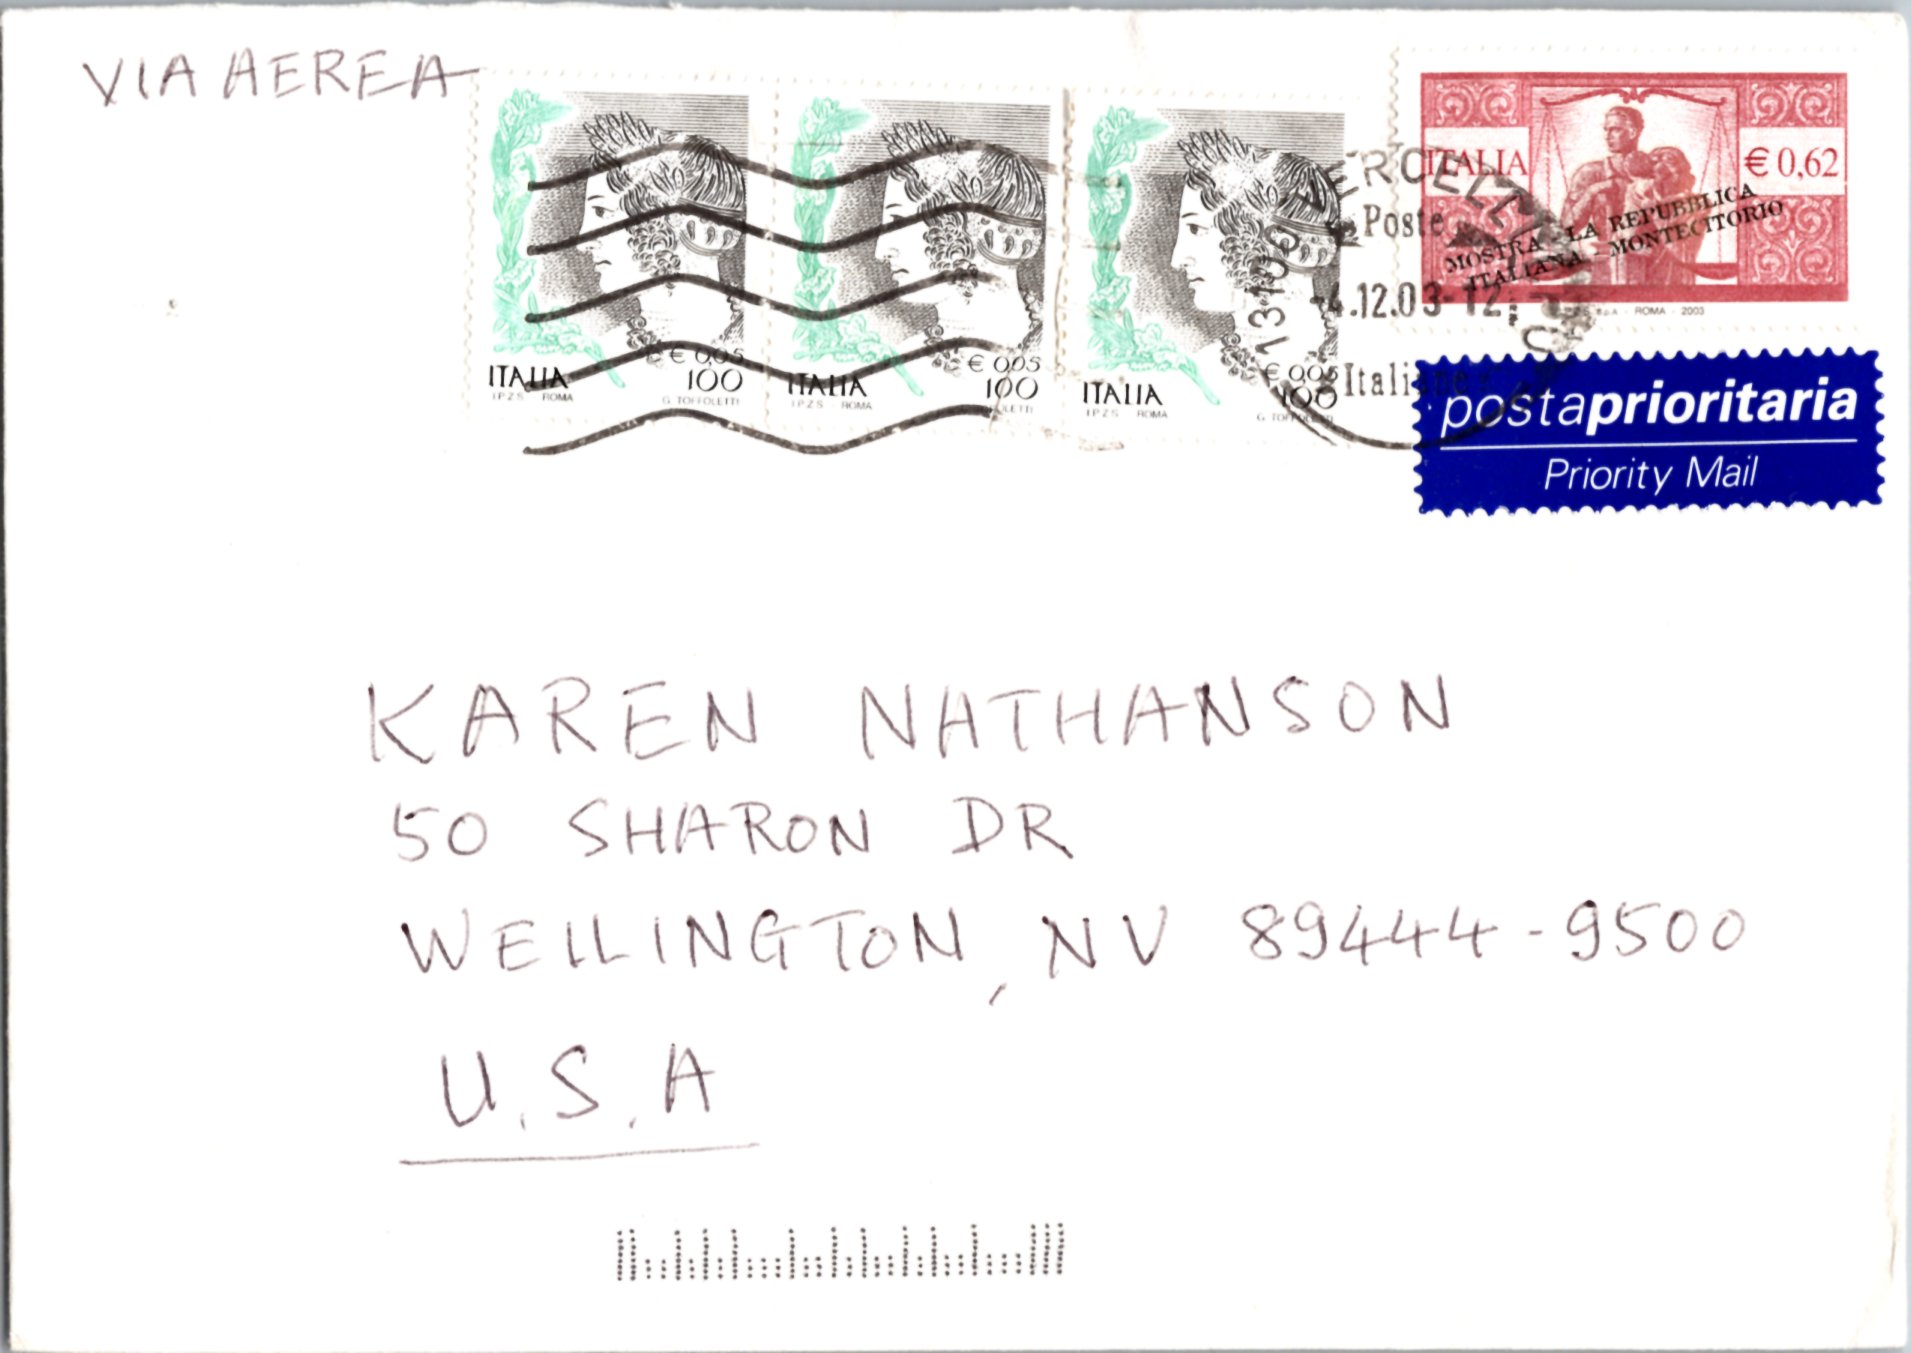 VIA AEREA
€ 0,05
100
ITALIA
I.P.Z.S. ROMA
G. TOFFOLETTI
€ 0,05
100
ITALIA
I.P.Z.S. ROMA
€ 0,05
100
ITALIA
I.P.Z.S. ROMA
G. TOFFOLETTI
13100 VERCELLI
Poste
-4.12.03-12
Italiane
ITALIA
€ 0,62
MOSTRA "LA REPUBBLICA
ITALIANA" - MONTECITORIO
S.p.A. - ROMA - 2003
postaprioritaria
Priority Mail
KAREN NATHANSON
50 SHARON DR
WELLINGTON, NV 89444-9500
U.S.A